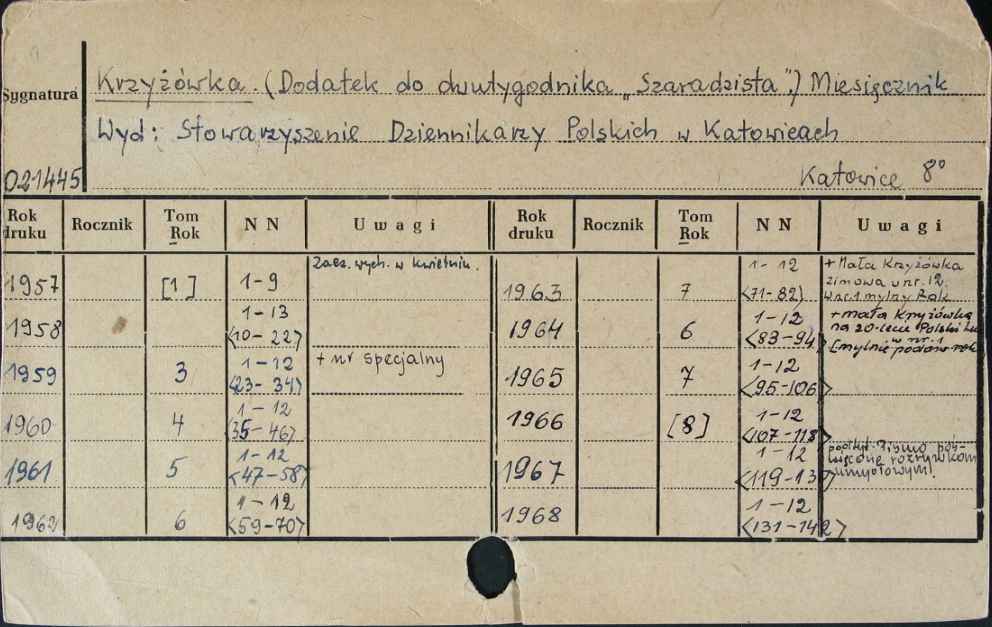 Sygnatura
Krzyżówka. (Dodatek do dwutygodnika „Szaradzista”.) Miesięcznik
Wyd: Stowarzyszenie Dziennikarzy Polskich w Katowicach
021445
Katowice 8°
Rok druku Rocznik Tom Rok N N Uwagi Rok druku Rocznik Tom Rok N N Uwagi
1957 [1] 1-9 Zacz. wych. w kwietniu.
1958 1-13 <10-22>
1959 3 1-12 <23-34> + nr specjalny
1960 4 1-12 <35-46>
1961 5 1-12 <47-58>
1962 6 1-12 <59-70>
1963 7 1-12 <71-82> + Mała Krzyżówka
zimowa w nr. 12.
W nr. 1 mylny Rok
1964 6 1-12 <83-94> + mała krzyżówka
na 20-lecie Polski
w nr. 1
[mylnie podano rok
1965 7 1-12 <95-106>
1966 [8] 1-12 <107-118>
1967 1-12 <119-13 Pismo poś-
więcone rozrywkom
umysłowym!
1968 1-12 <131-142>